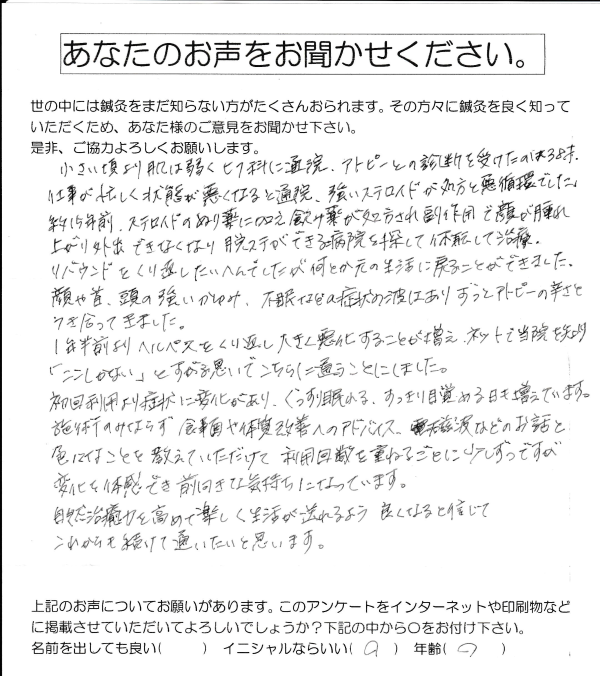 あなたのお声をお聞かせください。
世の中には鍼灸をまだ知らない方がたくさんおられます。その方々に鍼灸を良く知って
いただくため、あなた様のご意見をお聞かせ下さい。
是非、ご協力よろしくお願いします。
小さい頃より肌は弱く ヒフ科に通院、アトピーとの診断を受けたのは38才。
仕事が忙しく状態が悪くなると通院、強いステロイドが処方と悪循環でした。
約15年前、ステロイドのぬり薬に加え飲み薬が処方され副作用で顔が腫れ
上がり外出できなくなり 脱ステができる病院を探して休職して治療。
リバウンドをくり返したいへんでしたが何とか元の生活に戻ることができました。
顔や首、頭の強いかゆみ、不眠などの症状の波はあり ずっとアトピーの辛さと
つき合ってきました。
1年半前よりヘルペスをくり返し大きく悪化することが増え、ネットで当院を知り
「ここしかない」とすがる思いでこちらに通うことにしました。
初回利用より症状に変化があり、ぐっすり眠れる、すっきり目覚める日も増えています。
施術のみならず 食事面や体質改善へのアドバイス、電磁波などのお話と
色々なことを教えていただけて 利用回数を重ねるごとに少しずつですが
変化を体感でき前向きな気持ちになっています。
自然治癒力を高めて楽しく生活が送れるよう 良くなると信じて
これからも続けて通いたいと思います。
上記のお声についてお願いがあります。このアンケートをインターネットや印刷物など
に掲載させていただいてよろしいでしょうか？下記の中から○をお付け下さい。
名前を出しても良い(　　) イニシャルならいい(　) 年齢(　)